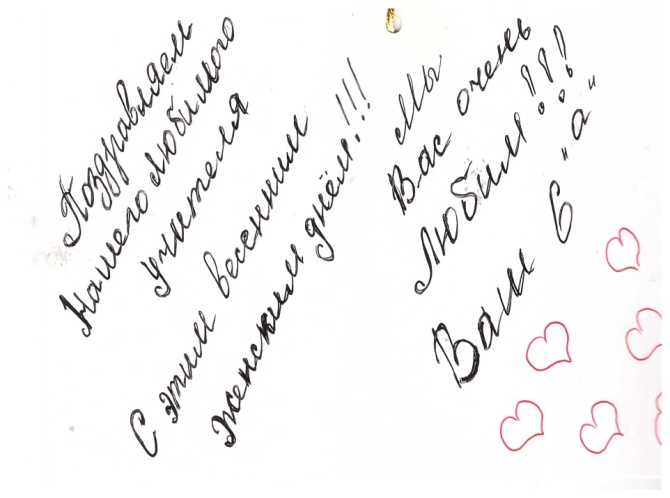 Поздравляем
Нашего любимого
учителя
С этим весенним
женским днём!!!
Мы
Вас очень
любим!!!
Ваш 6 "а"